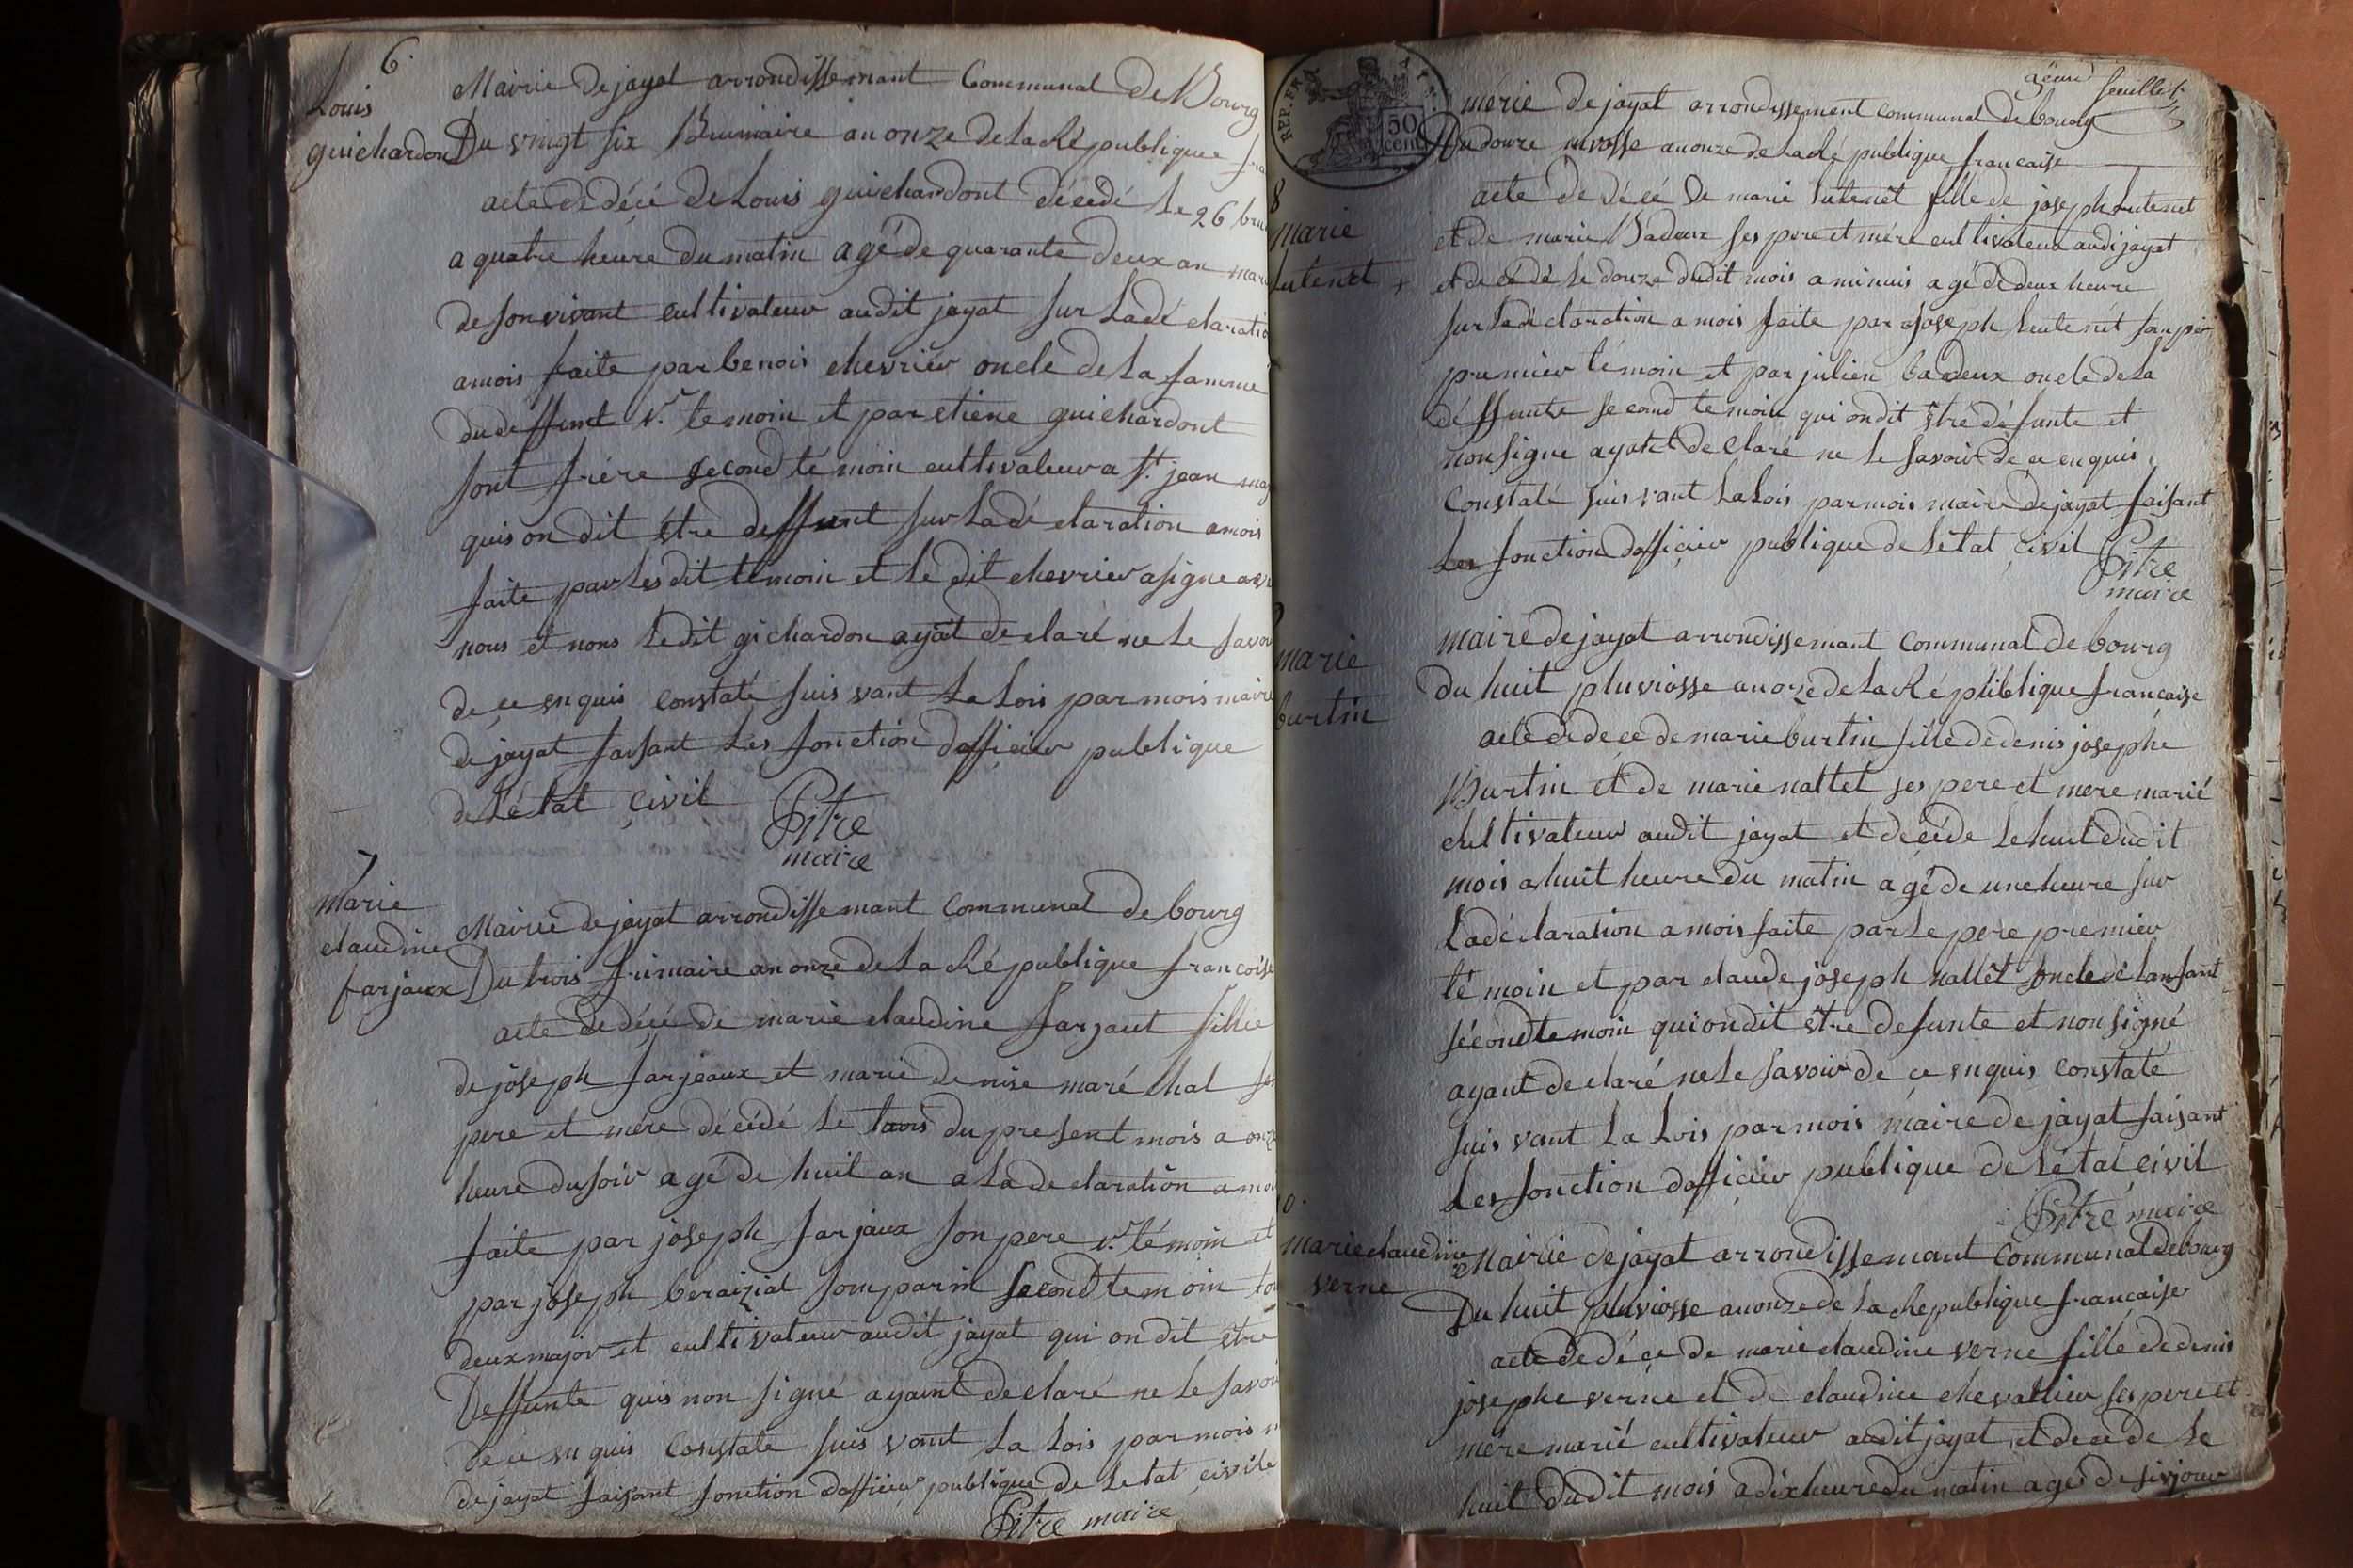 6.
Louis
guichardon
Mairie de jayat arrondissemant Communal De Bourg
Du vingt six Brumaire an onze de La République
acte de décé de Louis guichardont décédé Le 26
a quatre heure Du matin agé de quarante Deux an
de son vivant cultivateur audit jayat sur La dé claratio
amois faite par benois chevrier oncle de La famme
du deffunt 1.r temoin et par etiene guichardont
sont frére second té moin cultivateur a St. jean
quis on dit être deffunt sur La dé claration amois
faite par Les dit temoin et Le dit chevrier a signe
nous et nons Ledit gichardon ayat de claré ne Le
de ce en quis constaté suis vant La Lois par mois maire
de jayat faisant Les fonction dofficier publique
de Létat çivil Pitre
maire
7
Marie
claudine
farjaux
Mairie de jayat arrondissemant Communal de bourg
Du trois frimaire an onze de La République françoise
acte de décé de marie claudine farjaut fillie
de joseph farjeaux et marie denise maré chal
pere et mére décédé Le trois du present mois a onze
heure du soir agé de huit an a La de claration
faite par joseph farjaux son pere 1.r témoin et
par joseph beraizial son parin second temoin
deux major et cultivateur audit jayat qui on dit etre
Deffunte quis non signé ayaint de claré ne Le savoi
de ce en quis constate suis vant La Lois par mois
de jayat faisant fonction dofficier publique de Letat çivile
Pitre maire
feuillet
mérie de jayat arrondissement communal de bourg
Du douze nivosse an onze de La Ré publique francaise
8
marie
Lutenet
acte de décé de marie Lutenet fille de joseph Lutenet
et de marie Badoux ses pere et mére cultivateur audi jayat
et décédé Le douze dudit mois a minuis agé de deux heure
sur La dé claration a mois faite par joseph Leutenét son per
premier témoin et par julien badeux oncle de La
déffunte second temoin qui on dit être défunte et
non signe ayatet de claré ne Le savoir de ce en quis
Constaté suis vant La Lois par mois maire de jayat faisant
Les fonction dofficier publique de Létat çivil Pitre
maire
marie
burtin
maire de jayat arrondissemant communal de bourg
du huit pluviosse an oze de La Ré publique francaise
acte de dé ce de marie burtin fille de denis josephe
Burtin et de marie nattet ses pere et mere marié
cultivateur audit jayat et décéde Le huit dudit
mois a huit heure Du matin agé de une heure sur
La dé claration a mois faite par Le pere premier
té moin et par claude joseph nallét oncle de Lanfant
sécond temoin qui on dit être defunte et non signé
ayant de claré ne Le savoir de ce en quis constaté
suis vant La Lois par mois maire de jayat faisant
Les fonction dofficier publique de Létat çivil
Pitre maire
10.
marie claudine
verne
Mairie de jayat arrondissemant Communal de bourg
Du huit pluviosse an onze de La République francaise
acte de dé ce de marie claudine verne fille de denis
josephe verne et de claudine chevallier ses pere et
mére marié cultivateur audit jayat et decede Le
huit dudit mois a dix heure du matin agé de si jour